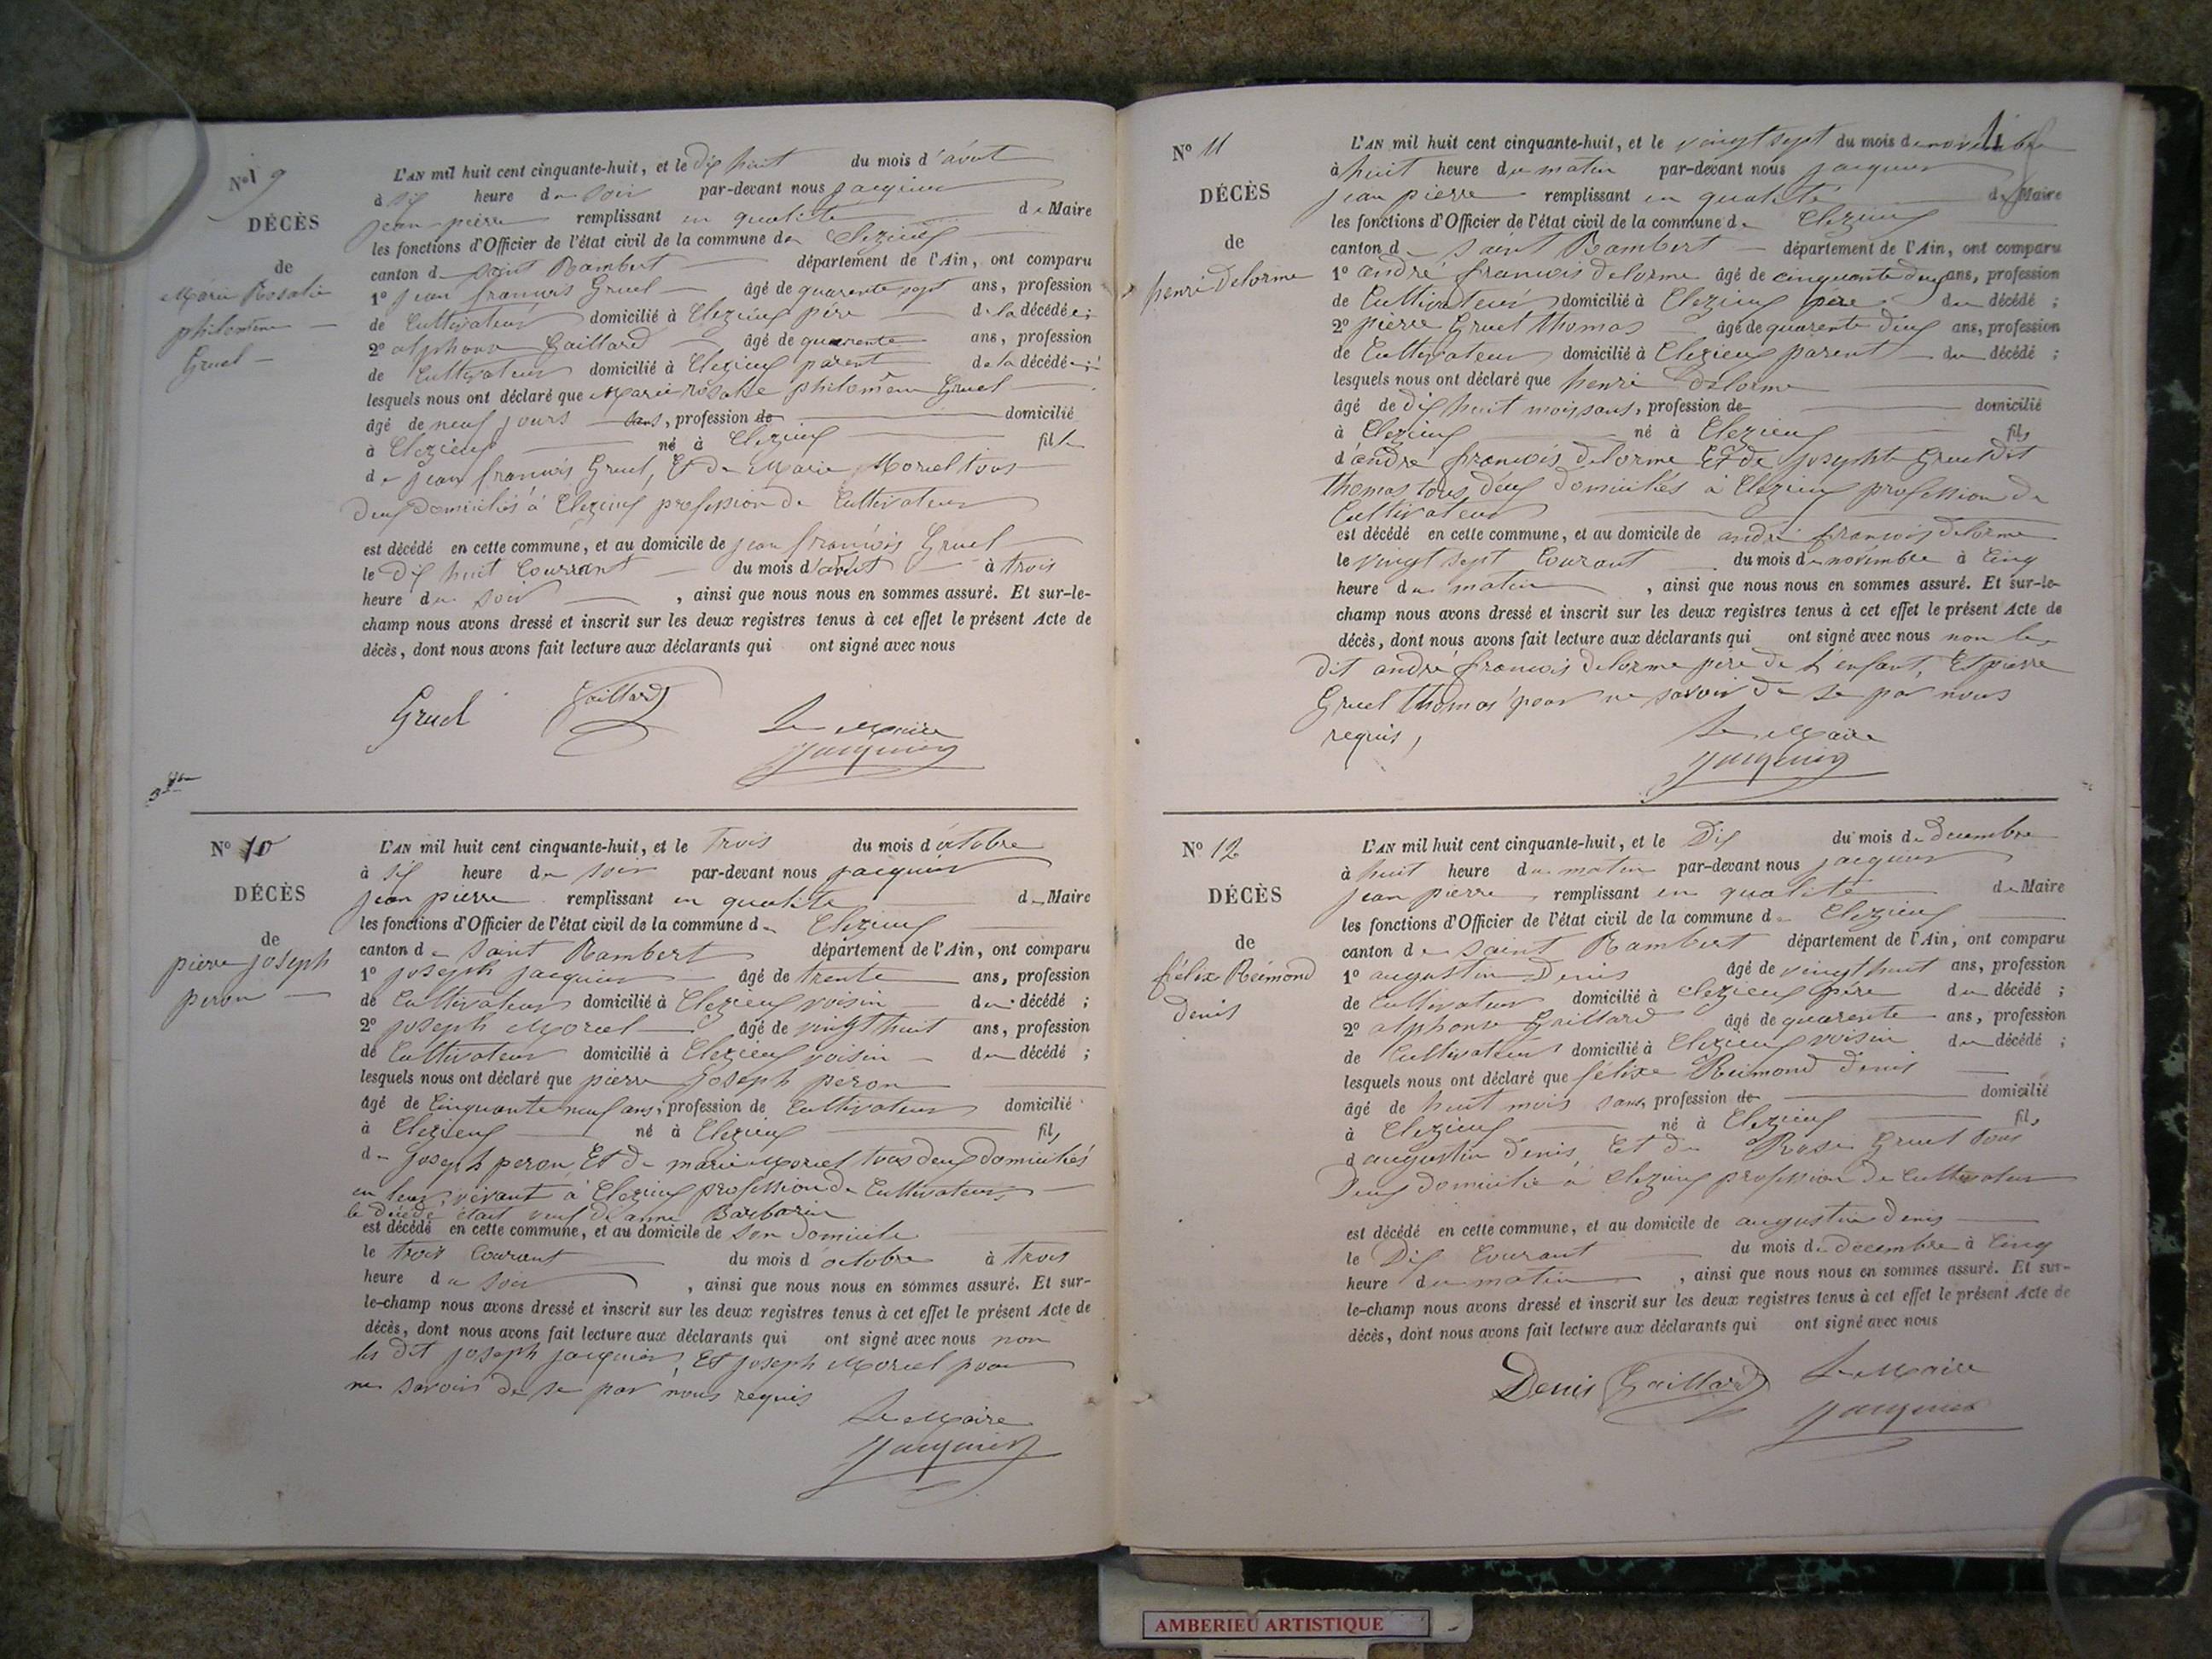 N° 9
DÉCÈS
de
Marie Rosalie
philomène
Gruel
L'AN mil huit cent cinquante-huit, et le dix huit du mois d'avout
à six heure du soir par-devant nous jacquier
jean pierre remplissant en qualité de Maire
les fonctions d'Officier de l'état civil de la commune de Clezieux
canton de Saint Rambert département de l'Ain, ont comparu
1° jean francois Gruel âgé de quarente sept ans, profession
de Cultivateur domicilié à Clezieux père de la décédée;
2° alphonse Gaillard âgé de quarente ans, profession
de Cultivateur domicilié à Clezieux parent de la décédée;
lesquels nous ont déclaré que Marie rosalie philomène Gruel
âgé de neuf jours sans, profession de domicilié
à Clezieux né à Clezieux fille
de jean francois Gruel, Et de Marie Moriel tous
deux domiciliés à Clezieux profession de Cultivateur
est décédé en cette commune, et au domicile de jean francois Gruel
le dix huit Courrant du mois d'avout à trois
heure du soir , ainsi que nous nous en sommes assuré. Et sur-le-
champ nous avons dressé et inscrit sur les deux registres tenus à cet effet le présent Acte de
décès, dont nous avons fait lecture aux déclarants qui ont signé avec nous
Gruel Gaillard Le Maire
Jacquier
N° 10
DÉCÈS
de
pierre joseph
peron
L'AN mil huit cent cinquante-huit, et le trois du mois d'octobre
à six heure du soir par-devant nous jacquier
jean pierre remplissant en qualité de Maire
les fonctions d'Officier de l'état civil de la commune de Clezieux
canton de Saint Rambert département de l'Ain, ont comparu
1° joseph jacquier âgé de trente ans, profession
de Cultivateur domicilié à Clezieux voisin du décédé ;
2° joseph Moriel âgé de vingt huit ans, profession
de Cultivateur domicilié à Clezieux voisin du décédé ;
lesquels nous ont déclaré que pierre joseph péron
âgé de Cinquante neuf ans, profession de Cultivateur domicilié
à Clezieux né à Clezieux fils
de joseph peron Et de marie Moriel tous deux domiciliés
en leur vivant à Clezieux profession de Cultivateurs
le décédé était veuf d'anne Barbarin
est décédé en cette commune, et au domicile de son domicile
le trois Courant du mois d'octobre à trois
heure du soir , ainsi que nous nous en sommes assuré. Et sur-
le-champ nous avons dressé et inscrit sur les deux registres tenus à cet effet le présent Acte de
décès, dont nous avons fait lecture aux déclarants qui ont signé avec nous non
les dit joseph jacquier, Et joseph Moriel pour
ne savoir de se par nous requis
Le Maire
Jacquier
N° 11
DÉCÈS
de
henri Delorme
L'AN mil huit cent cinquante-huit, et le vingt sept du mois de novembre
à huit heure du matin par-devant nous jacquier
jean pierre remplissant en qualité de Maire
les fonctions d'Officier de l'état civil de la commune de Clezieux
canton de Saint Rambert département de l'Ain, ont comparu
1° andré francois delorme âgé de cinquante deux ans, profession
de Cultivateur domicilié à Clezieux père du décédé ;
2° pierre Gruel thomas âgé de quarente deux ans, profession
de Cultivateur domicilié à Clezieux parent du décédé ;
lesquels nous ont déclaré que henri Delorme
âgé de dix huit mois sans, profession de domicilié
à Clezieux né à Clezieux fils
d'andré francois delorme Et de josephte Gruel dit
thomas tous deux domiciliés à Clezieux profession de
Cultivateur
est décédé en cette commune, et au domicile de andré francois delorme
le vingt sept Courant du mois de novembre à Cinq
heure du matin , ainsi que nous nous en sommes assuré. Et sur-le-
champ nous avons dressé et inscrit sur les deux registres tenus à cet effet le présent Acte de
décès, dont nous avons fait lecture aux déclarants qui ont signé avec nous non les
dit andré francois delorme père de l'enfant, Et pierre
Gruel thomas pour ne savoir de se par nous
requis,
Le Maire
Jacquier
N° 12
DÉCÈS
de
félix Reimond
Denis
L'AN mil huit cent cinquante-huit, et le Dix du mois de Decembre
à huit heure du matin par-devant nous jacquier
jean pierre remplissant en qualité de Maire
les fonctions d'Officier de l'état civil de la commune de Clezieux
canton de Saint Rambert département de l'Ain, ont comparu
1° augustin Denis âgé de vingt huit ans, profession
de Cultivateur domicilié à Clezieux père du décédé ;
2° alphonse Gaillard âgé de quarente ans, profession
de Cultivateur domicilié à Clezieux voisin du décédé ;
lesquels nous ont déclaré que félixe Reimond Denis
âgé de huit mois sans, profession de domicilié
à Clezieux né à Clezieux fils
d'augustin Denis, Et de Rose Gruel tous
Deux domicilié à Clezieux profession de Cultivateur
est décédé en cette commune, et au domicile de augustin Denis
le Dix Courant du mois de Decembre à Cinq
heure du matin , ainsi que nous nous en sommes assuré. Et sur-
le-champ nous avons dressé et inscrit sur les deux registres tenus à cet effet le présent Acte de
décès, dont nous avons fait lecture aux déclarants qui ont signé avec nous
Denis Gaillard Le Maire
Jacquier
AMBERIEU ARTISTIQUE